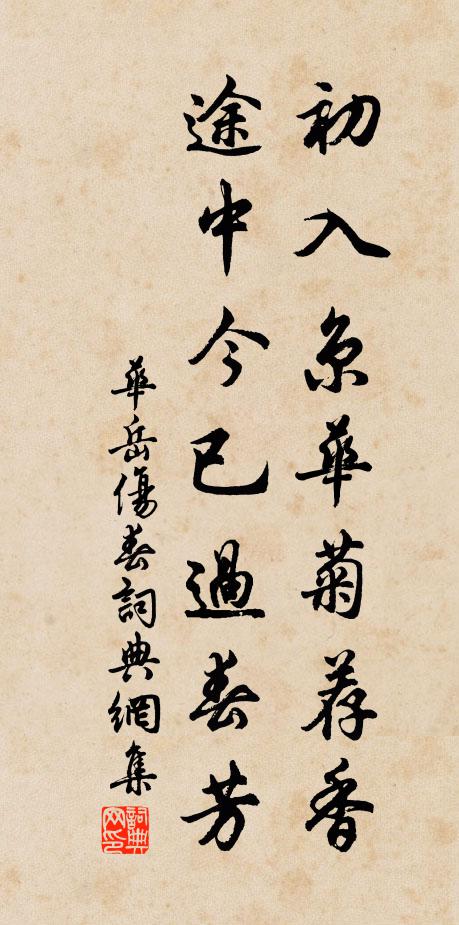 初入京華菊荐香
途中今已過春芳
華岳傷春詞典網集
詞典網印